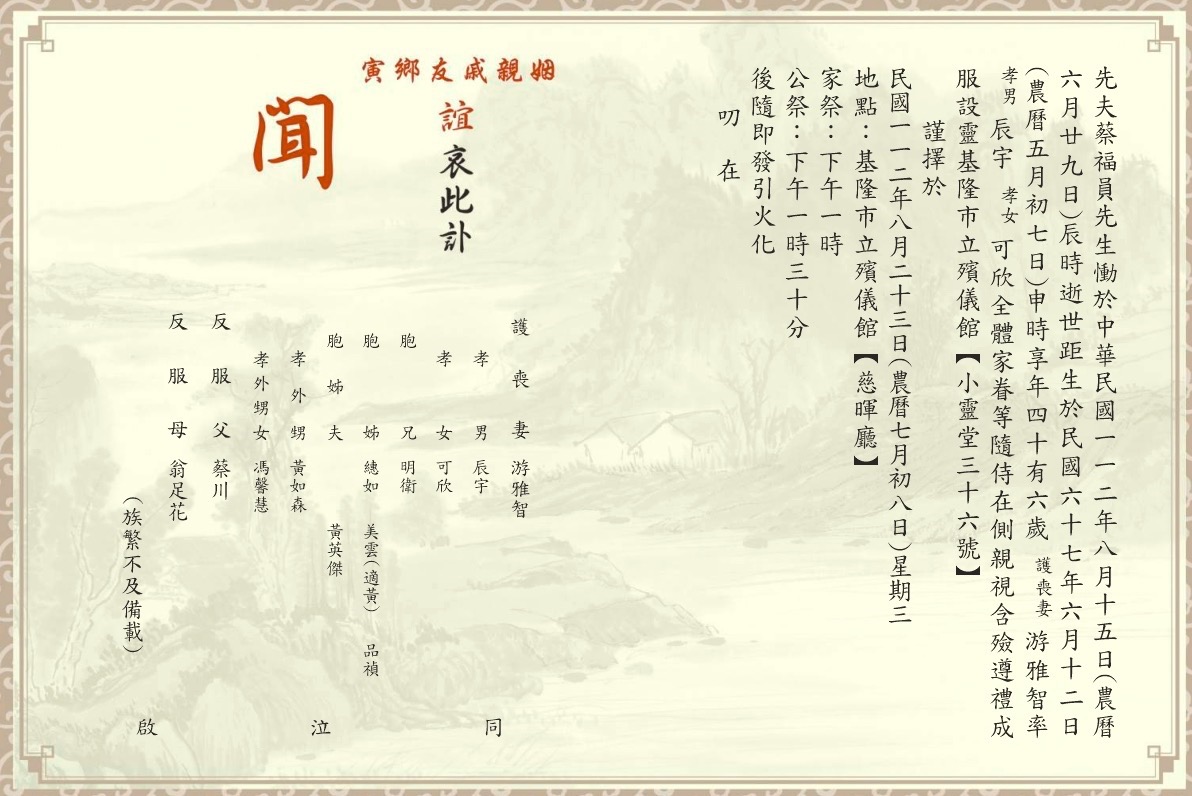 先夫蔡福員先生慟於中華民國一一二年八月十五日(農曆
六月廿九日)辰時逝世距生於民國六十七年六月十二日
(農曆五月初七日)申時享年四十有六歲 護喪妻 游雅智率
孝男 辰宇 孝女 可欣全體家眷等隨侍在側親視含殮遵禮成
服設靈基隆市立殯儀館【小靈堂三十六號】
謹擇於
民國一一二年八月二十三日(農曆七月初八日)星期三
地點：基隆市立殯儀館【慈暉廳】
家祭：下午一時
公祭：下午一時三十分
後隨即發引火化
叨 在
姻親戚友鄉寅
誼哀此訃
聞
護喪妻 游雅智
孝男 辰宇
孝女 可欣
胞兄 明衛
胞姊 繐如 美雲(適黃) 品禎
胞姊夫 黃英傑
孝外甥 黃如森
孝外甥女 馮馨慧
反服父 蔡川
反服母 翁足花
(族繁不及備載)
同 泣 啟